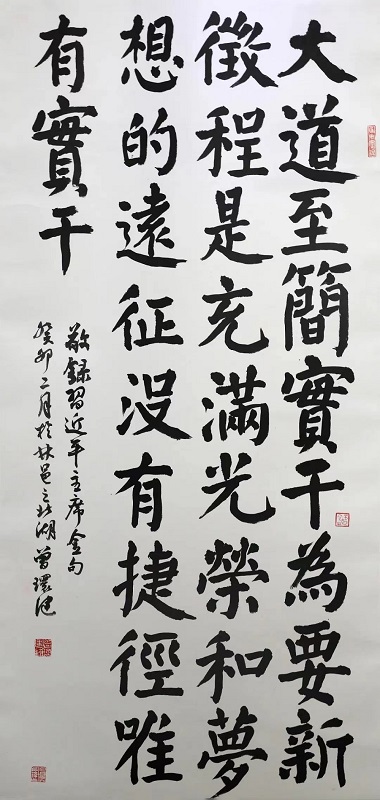 大道至簡實干為要新
徵程是充滿光榮和夢
想的遠征沒有捷徑唯
有實干
敬錄習近平主席金句
癸卯二月於林邑之北湖曾環